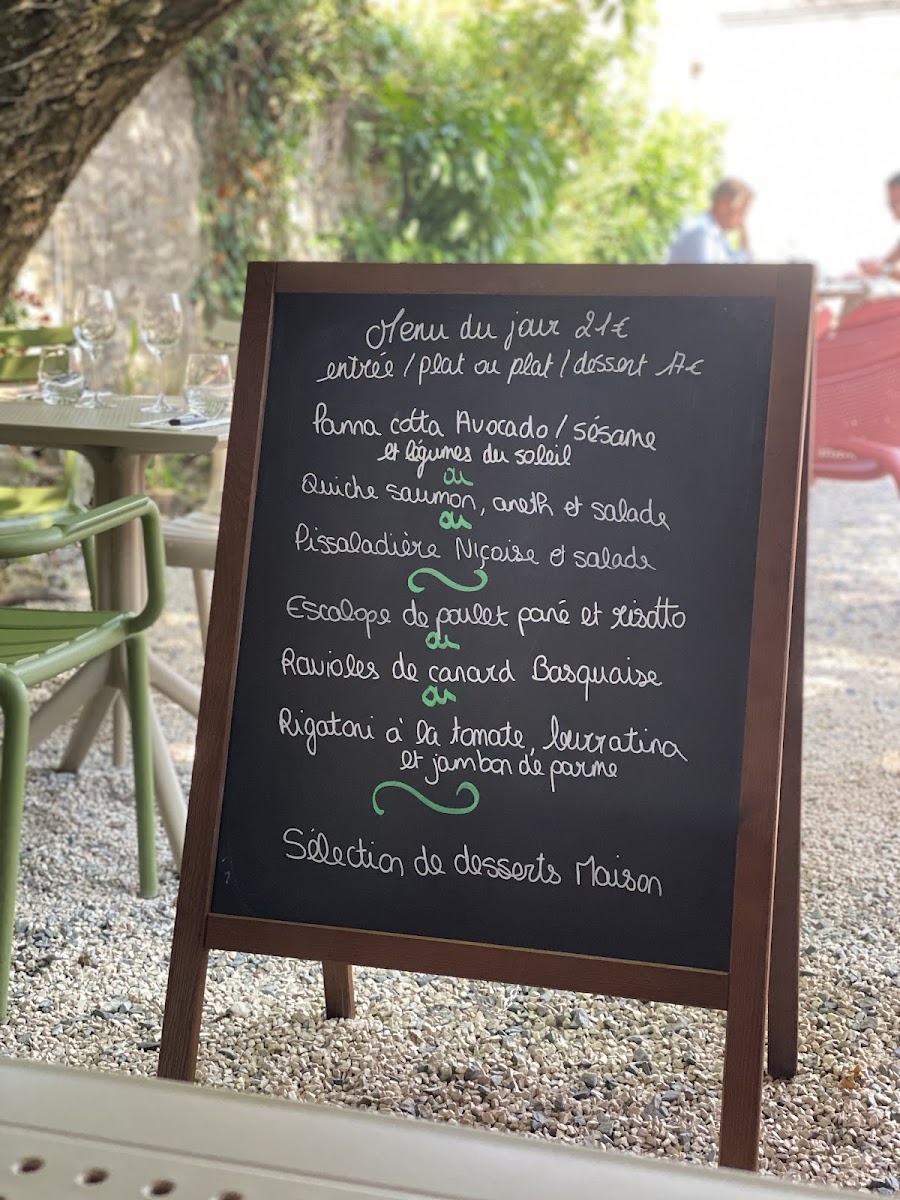 Menu du jour 21€
entrée / plat ou plat / dessert 17€
Panna cotta Avocado / sésame
et légumes du soleil
ou
Quiche saumon, aneth et salade
ou
Pissaladière Niçoise et salade
Escalope de poulet pané et risotto
ou
Ravioles de canard Basquaise
ou
Rigatoni à la tomate, burratina
et jambon de parme
Sélection de desserts Maison